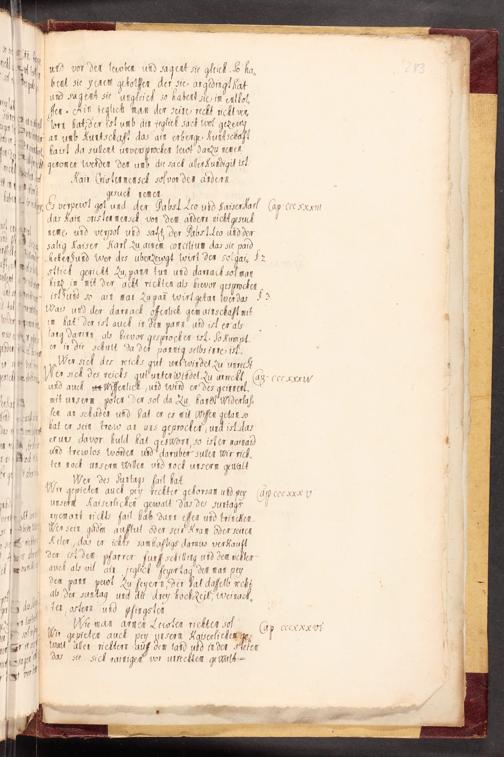 283
und vor den lewten und sagent sie gleich. So ha-
bent sie yenem geholffen der sie angedingt hat
und sagent sie ungleich so habent sie im entholf-
fen. Ain yeglich man der seine recht nicht ver-
lorn hat, der ist umb ein yeglich sach wol gezeug
an umb kuntschafft das ain erberge kuntschafft
haist da sullent unversprochen lewt darzu nemen
genomen werden den umb die sach aller kundigst ist
Kain Cristenmensch sol von dem andern
gesuch nemen
Es verpewt got und der Pabst Leo und Kaiser Karl
Cap CCCXXXIII
das kain cristenmensch von dem andern nicht gesuch
neme, und verpot und satzt der Pabst Leo und der
salig Kaiser Karl zu ainem concilium das sie paid
heten und wer des uberzewgt wirt den sol gai-
§ 2
stlich gericht zu pann tun und darnach sol man
hinz im mit der acht richten als hievor gesprochen
ist und so ain man zu pan wirt getan wer das
§ 3
wais und der darnach offenlich gemainschafft mit
im hat der ist auch in dem pann und ist er als
lang darinn als hievor gesprochen ist. So kumpt
er in die schult da der pannig selb inne ist.
Wer sich des reichs gut underwindet zu unrecht
Wer sich des reichs gut underwindet zu unrecht
Cap. CCCXXXIV
und auch wissenlich, und wird er des geinnert
mit unserm poten der sol da zu hant widerlas-
sen an schaden und hat er es mit wissen getan so
hat er sein trew an uns geprochen, und ist das
er uns davor huld hat gesworn, so ist er mainaid
und trewlos worden und daruber sulen wir rich-
ten nach unserm willen und nach unserm gewalt
Wer des Suntags fail hat
Wir gepieten auch pey richter gehorsam und pey
Cap CCCXXXV
unserm kaiserlichen gewalt das des suntags
nyemant nichts fail hab dann essen und trincken.
Wer sein gadm aufftut oder sein kram oder seinen
keler, das er ichts damus verkaufft
der ist dem pfarrer funff schilling und dem richter
auch als vil ain yeglich feyrtag den man pey
dem pann pewt zu feyern, der hat dasselb recht
als der suntag und die drey hochzeit, weinach-
ten ostern und pfingsten
Wie man armen Lewten richten sol
Wir gepieten auch pey unserm kaiserlichen ge-
Cap CCCXXXVI
walt allen richtern auff dem land und in den steten
das sie sich rainigen vor unrechten gewalt